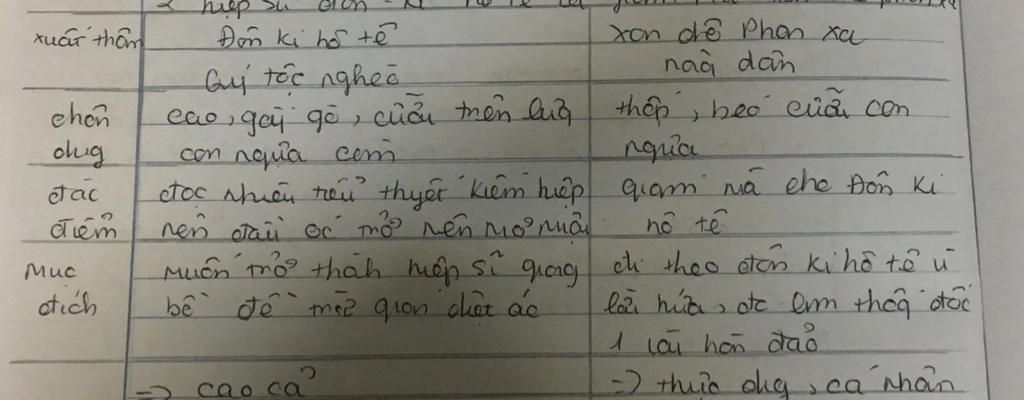 xuất thân
Đôn ki hô tê
Quý tộc nghèo
xan chô Phan xa
nông dân
chân
dug
cao, gầy gò, cưỡi trên lưg
con ngựa còm
thấp, béo cưỡi con
ngựa
đặc
điểm
đọc nhiều tiểu thuyết kiếm hiệp
nên đầu óc trở nên mơ muội
giám mã cho Đôn Ki
hô tê
Mục
đích
muốn trở thành hiệp sĩ giang
hồ để trừ gian diệt ác
đi theo đôn ki hô tê vì
lời hứa, đc làm thốg đốc
1 vài hòn đảo
=> cao cả
=> thực dụg, cá nhân